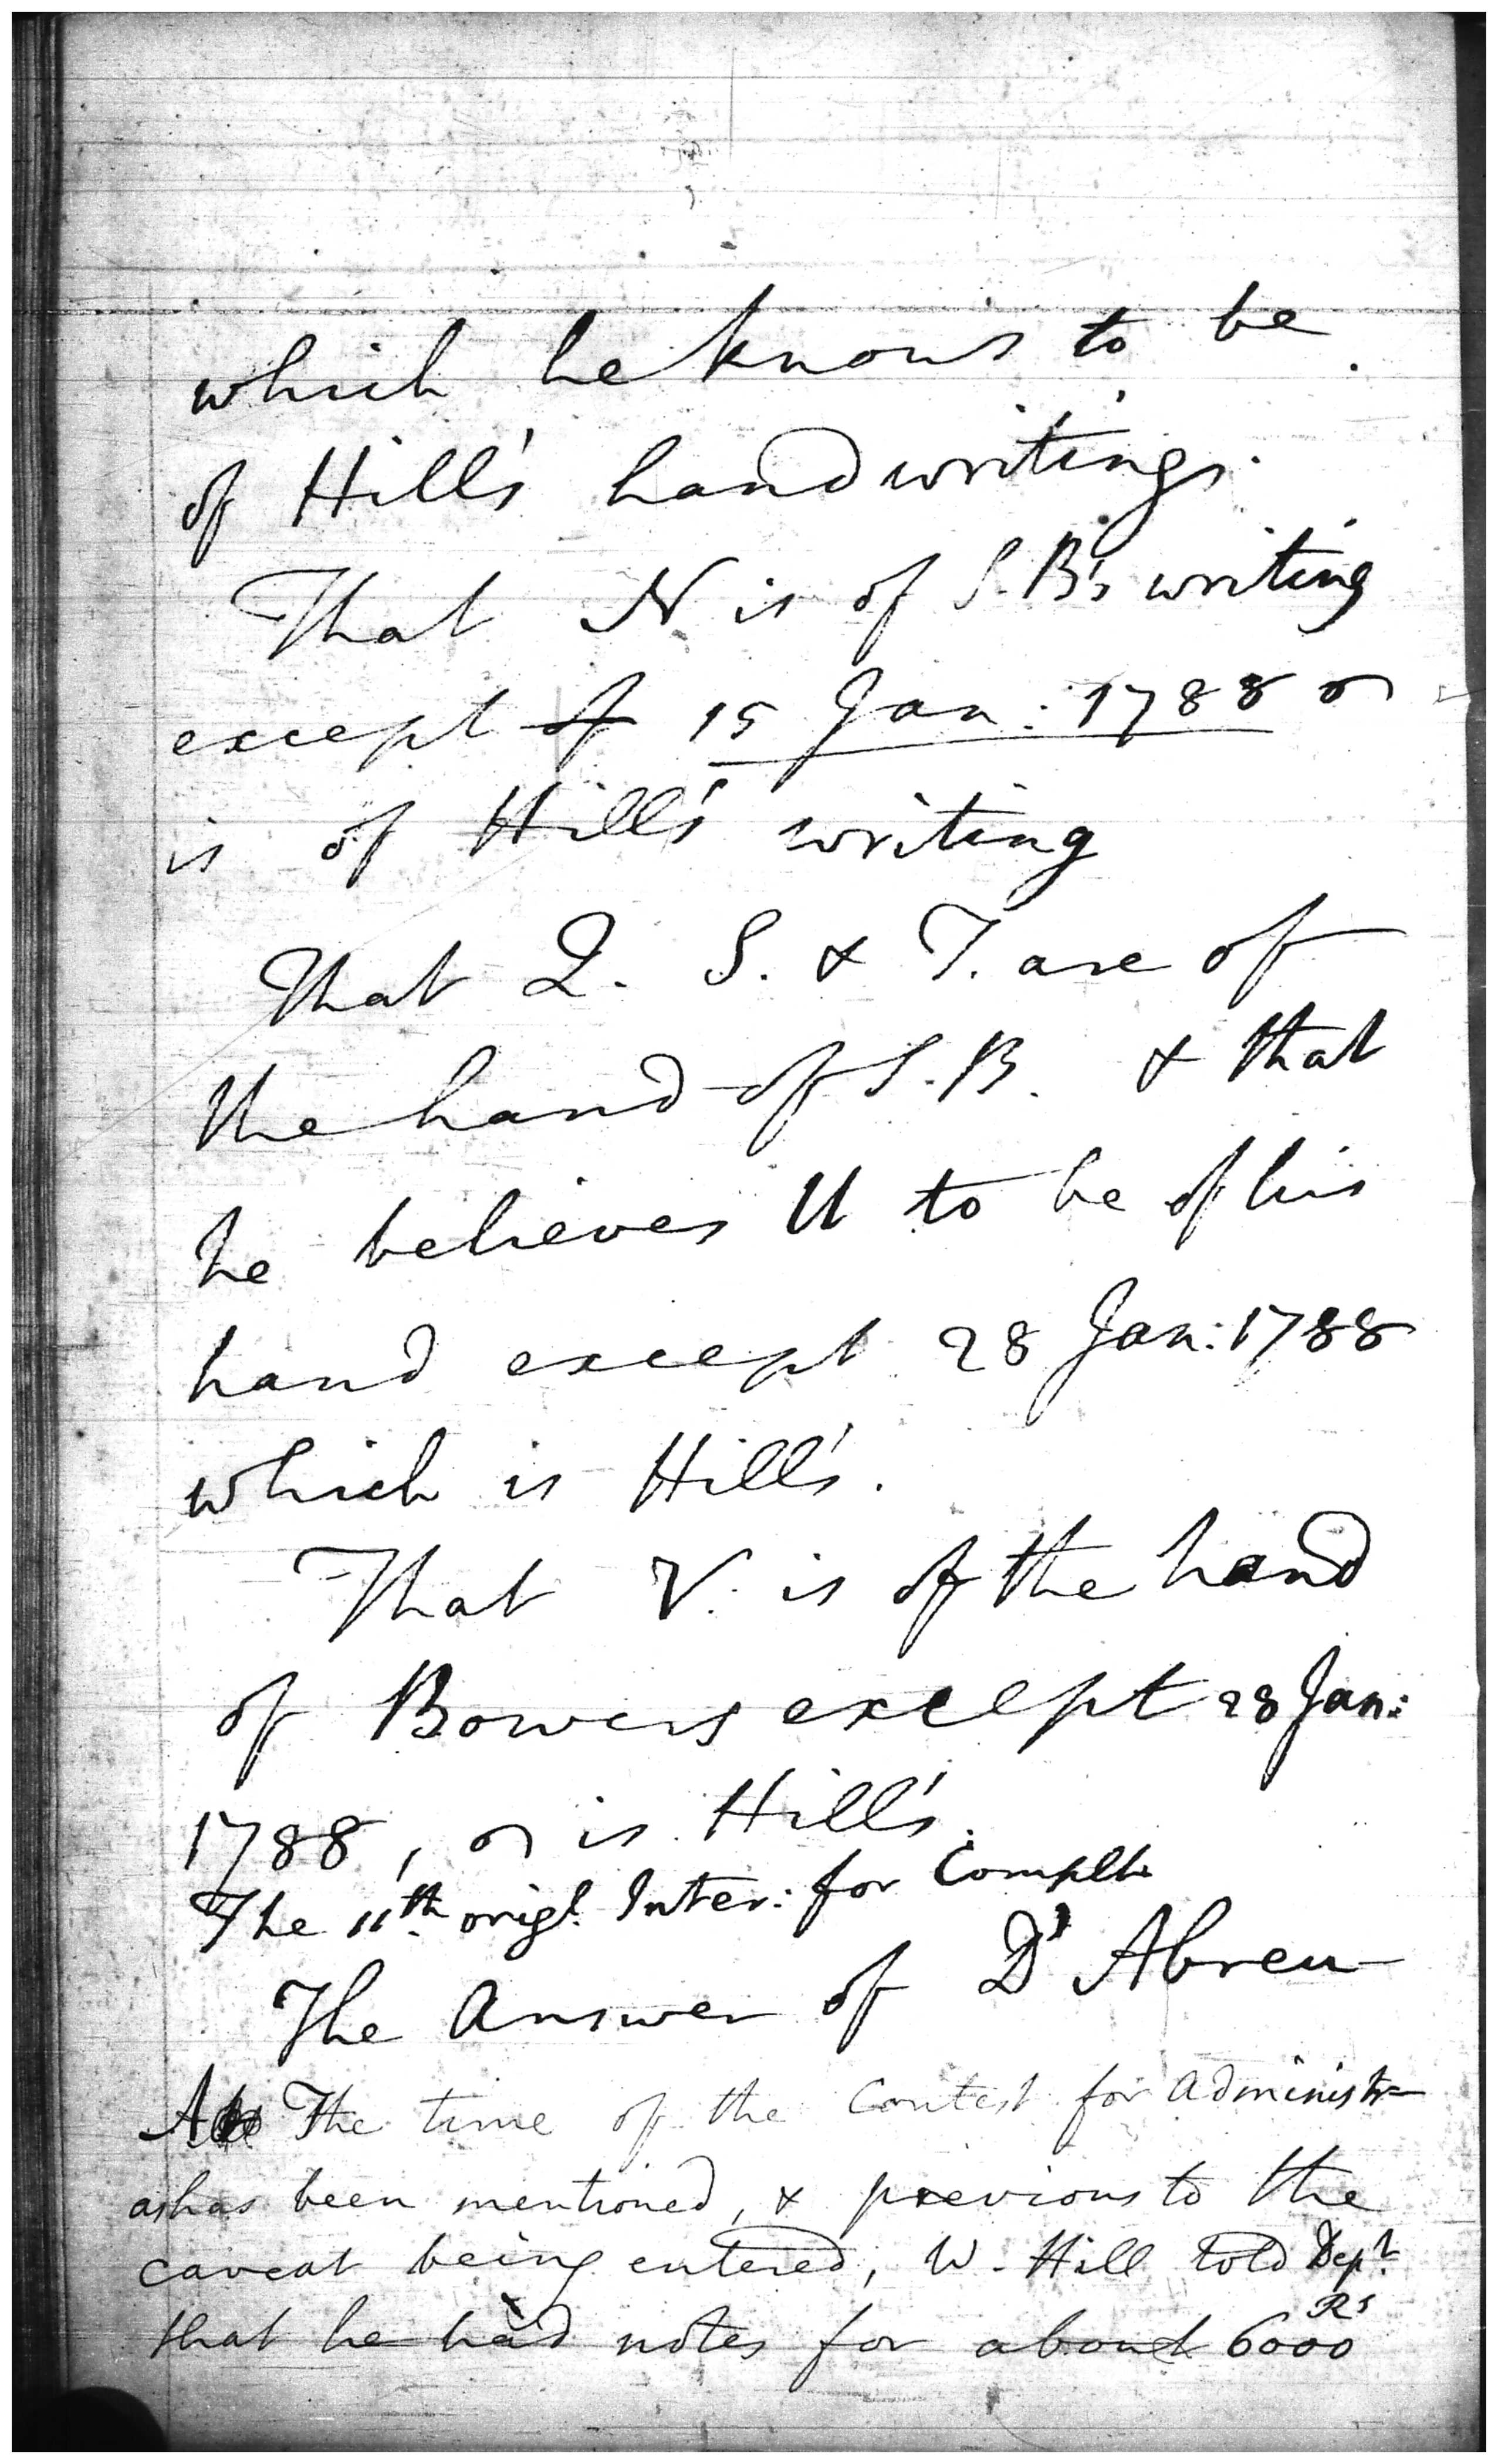 which he knows to be
of Hill's handwritings.
That N is of S. B's writing
except of 15 Jan: 1788
is of Hill's writing
That Q. S. & T. are of
the hand of S. B. & that
he believes U to be of his
hand except 28 Jan: 1788
which is Hill's.
That V. is of the hand
of Bowers except 28 Jan:
1788, is Hill's.
The 11th. origl. Inter: for Complt.
The Answer of D'Abreu
The time of the Contest for Administr
as has been mentioned, & previous to the
caveat being entered, W. Hill told Dept.
that he had notes for about 6000 Rs